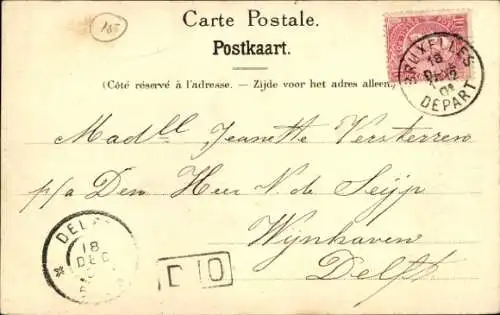 165
Carte Postale.
Postkaart.
(Côté réservé à l'adresse. — Zijde voor het adres alleen.
10
BRUXELLES
18
DEPART
Madll Jeanette Versterren
p/a Den Heer N. de Seijp
Wijnhaven
Delft
DEL
18
DEC
D O